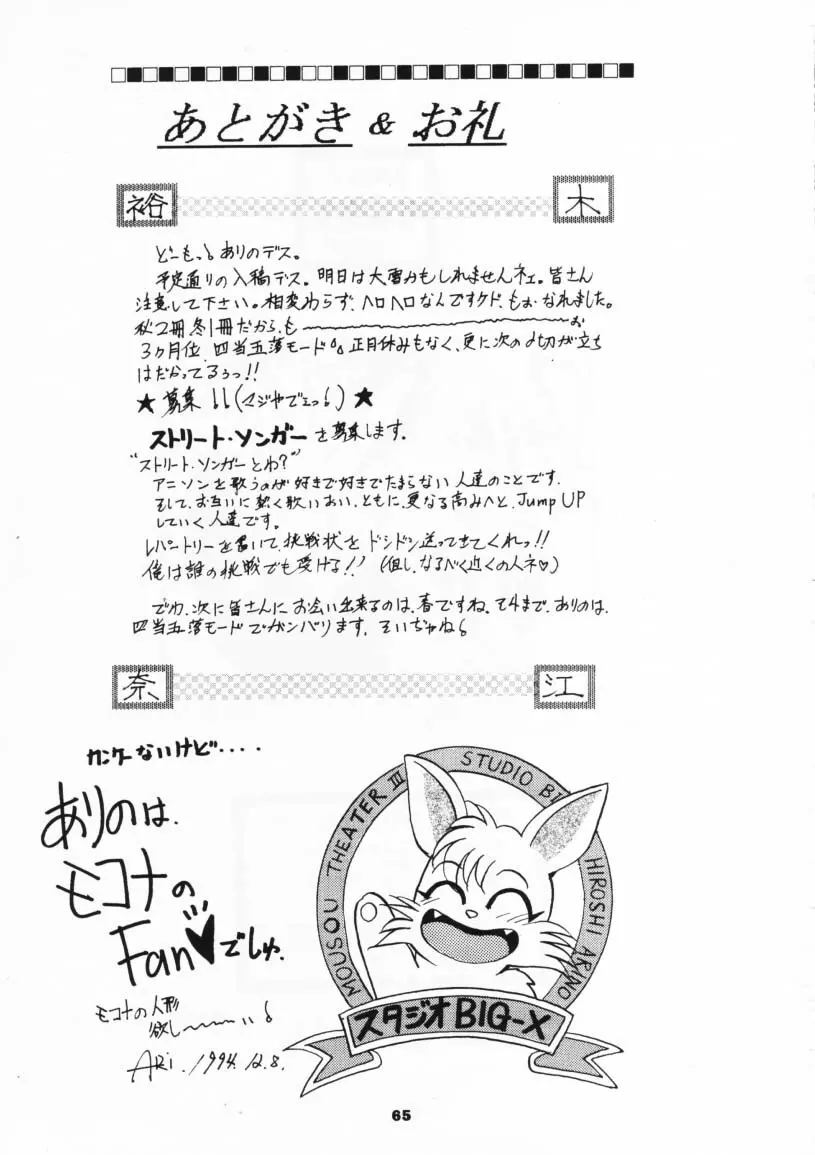 あとがき & お礼
裕 木
どーもっ!ありのデス。
予定通りの入稿デス。明日は大雪かもしれませんネェ。皆さん
注意して下さい。相変わらず、ヘロヘロなんですケド、もぉ、なれました。
秋2冊冬1冊だから、も〜〜〜〜〜〜〜〜〜〜お
3ヶ月位、四当五落モード。正月休みもなく、更に次の〆切が立ち
はだかってるぅっ!!
★ 募集!!(マジやでェっ!) ★
ストリート・ソンガーを募集します。
"ストリート・ソンガーとわ?"
アニソンを歌うのが好きで好きでたまらない人達のことです。
そして、お互いに熱く歌いあい、ともに、更なる高みへと、Jump UP
していく人達です。
レパートリーを書いて、挑戦状をドシドシ送ってきてくれっ!!
俺は誰の挑戦でも受ける!!(但し、なるべく近くの人ネ♡)
でわ、次に皆さんにお会い出来るのは、春ですね。それまで、ありのは、
四当五落モードでガンバリます。そいぢゃね!
奈 江
カンケーないけど・・・・
ありのは、
モコナの
Fan♥でしゅ。
モコナの人形
欲し〜〜〜い!
ARI. 1994.12.8.
MOUSOU THEATER III STUDIO BI HIROSHI ARINO
スタジオBIG-X
65